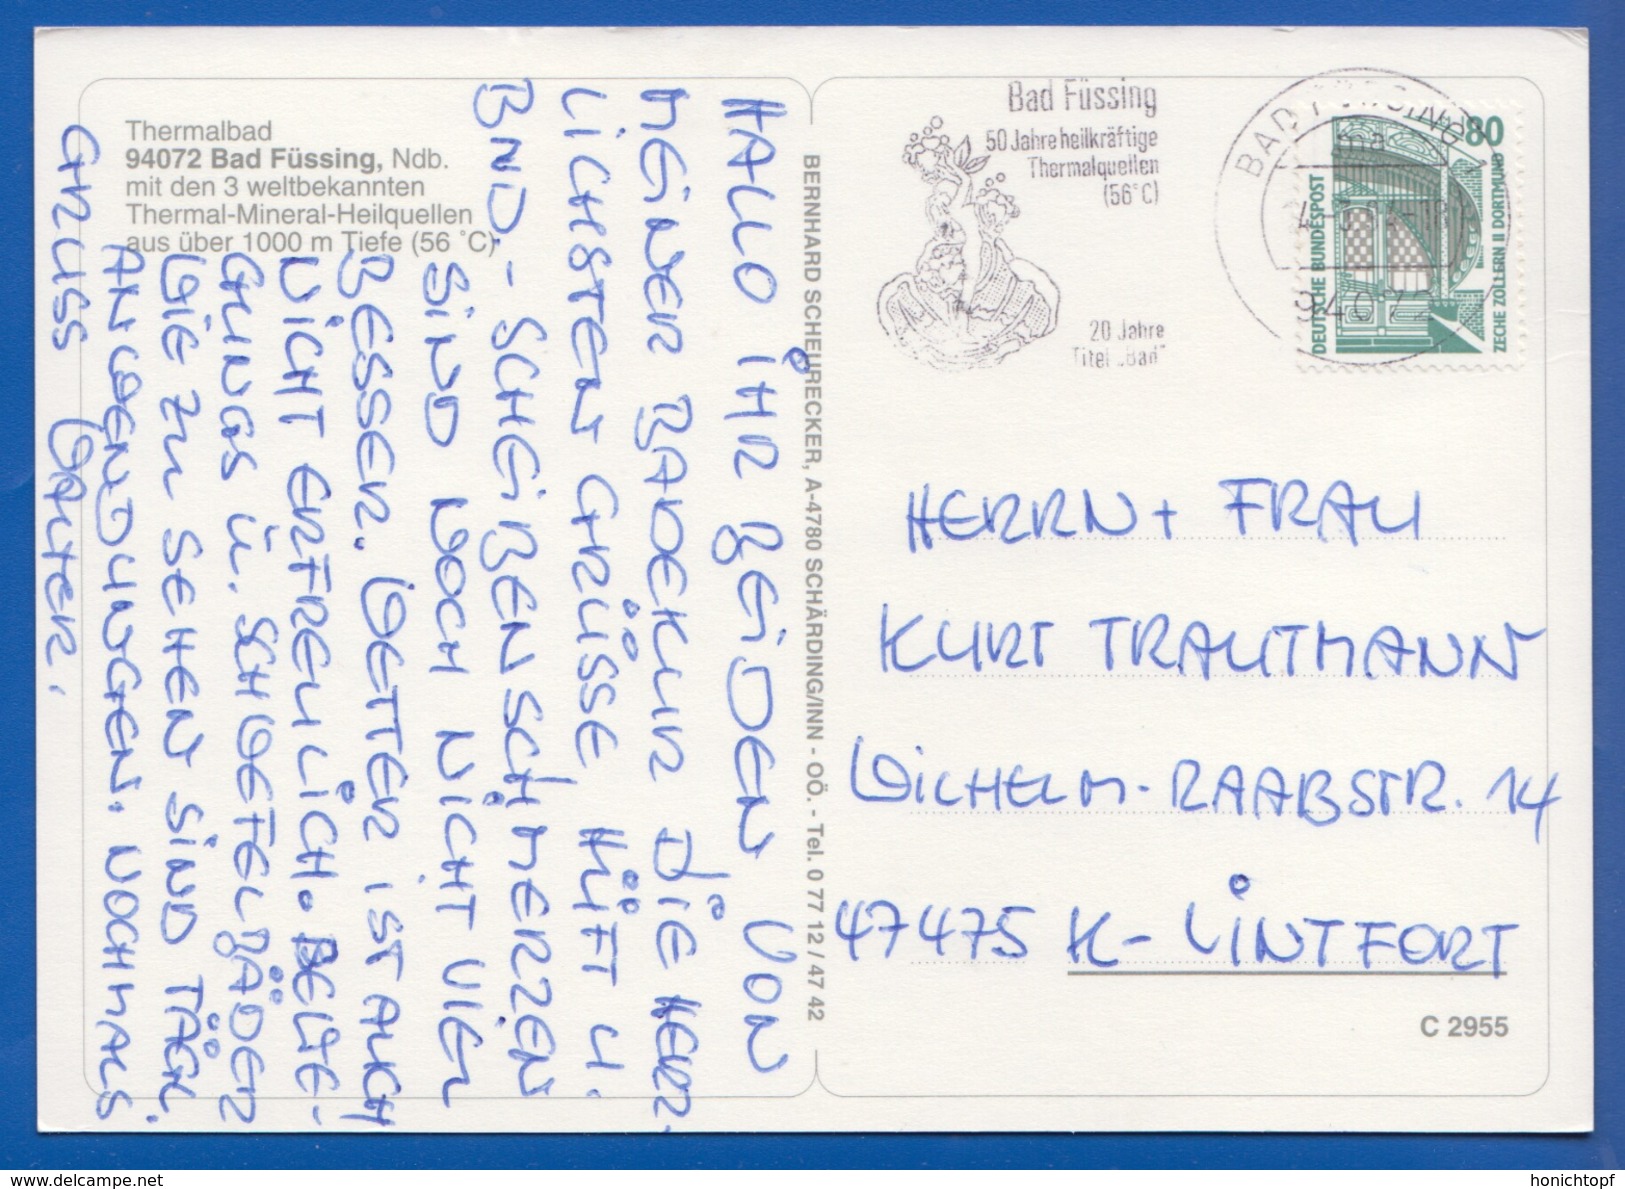 Thermalbad
94072 Bad Füssing, Ndb.
mit den 3 weltbekannten
Thermal-Mineral-Heilquellen
aus über 1000 m Tiefe (56 °C)
HALLO IHR BEIDEN VON
MEINER BADEKUR DIE HERZ-
LICHSTEN GRÜSSE, HÜFT U.
BND.-SCHEIBENSCHMERZEN
SIND NOCH NICHT VIEL
BESSER. WETTER IST AUCH
NICHT ERFREULICH. BELÜF-
GUNGS U. SCHWEFELBÄDER
WIE ZU SEHEN SIND TÄGL.
ANWENDUNGEN. NOCHMALS
GRUSS WALTER.
BERNHARD SCHEURECKER, A-4780 SCHÄRDING/INN - OÖ. - Tel. 0 77 12 / 47 42
Bad Füssing
50 Jahre heilkräftige
Thermalquellen
(56°C)
20 Jahre
Titel „Bad"
BAD FÜSSING
ma
94072
80
DEUTSCHE BUNDESPOST
ZECHE ZOLLERN II DORTMUND
HERRN + FRAU
KURT TRAUTMANN
WILHELM-RAABSTR. 14
47475 K-LINTFORT
C 2955
delcampe.net
honichtopf